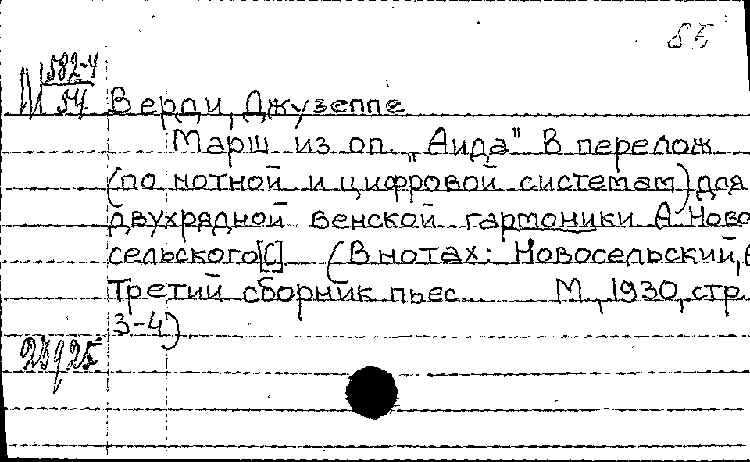 85
М 582-4
54
Верди, Джузеппе
Марш из оп. „Аида" в перелож
(по нотной и цифровой системам) для
двухрядной венской гармоники А. Ново
сельского [С] (В нотах: Новосельский,
Третий сборник пьес... М, 1930, стр.
3-4)